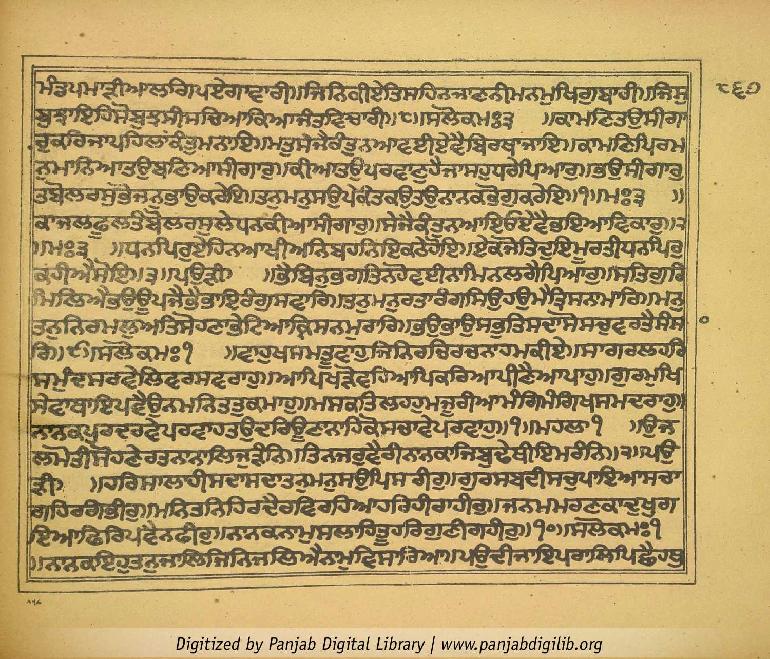 ਮੰਡਪਮਾੜੀਆਲਗਿਪਏਗਾਵਾਰੀ॥ਜਿਨਿਕੀਏਤਿਸਹਿਨਜਾਣਨੀਮਨਮੁਖਿਗੁਬਾਰੀ॥ਜਿਸੁ ੮੬੭
ਬੁਝਾਇਹਿਸੋਬੁਝਸੀਸਚਿਆਕਿਆਜੰਤਵਿਚਾਰੀ॥੮॥ਸਲੋਕਮਃ੩ ॥ਕਾਮਣਿਤਉਸੀਗਾ
ਰੁਕਰਿਜਾਪਹਿਲਾਂਕੰਤੁਮਨਾਇ॥ਮਤੁਸੇਜੈਕੰਤੁਨਆਵਈਏਵੈਬਿਰਥਾਜਾਇ॥ਕਾਮਣਿਪਿਰਮ
ਨੁਮਾਨਿਆਤਉਬਣਿਆਸੀਗਾਰੁ॥ਕੀਆਤਉਪਰਵਾਣੁਹੈਜਾਸਹੁਧਰੇਪਿਆਰੁ॥ਭਉਸੀਗਾਰੁ
ਤਬੋਲਰਸੁਭੋਜਨੁਭਾਉਕਰੇਇ॥ਤਨੁਮਨੁਸਉਪੇਕੰਤਕਉਤਉਨਾਨਕਭੋਗੁਕਰੇਇ॥੧॥ਮਃ੩ ॥
ਕਾਜਲਫੂਲਤੰਬੋਲਰਸੁਲੇਧਨਕੀਆਸੀਗਾਰੁ॥ਸੇਜੈਕੰਤੁਨਆਇਓਏਵੈਭਇਆਵਿਕਾਰੁ॥੨
॥ਮਃ੩ ॥ਧਨਪਿਰੁਏਹਿਨਆਖੀਅਨਿਬਹਨਿਇਕਠੇਹੋਇ॥ਏਕਜੋਤਿਦੁਇਮੂਰਤੀਧਨਪਿਰੁ
ਕਹੀਐਸੋਇ॥੩॥ਪਉੜੀ ॥ਭੈਬਿਨੁਭਗਤਿਨਹੋਵਈਨਾਮਿਨਲਗੈਪਿਆਰੁ॥ਸਤਿਗੁਰਿ
ਮਿਲਿਐਭਉਊਪਜੈਭੈਭਾਇਰੰਗੁਸਵਾਰਿ॥ਤਨੁਮਨੁਰਤਾਰੰਗਸਿਉਹਉਮੈਤ੍ਰਿਸਨਾਮਾਰਿ॥ਮਨੁ
ਤਨੁਨਿਰਮਲੁਅਤਿਸੋਹਣਾਭੇਟਿਆਕ੍ਰਿਸਨਮੁਰਾਰਿ॥ਭਉਭਾਉਸਭੁਤਿਸਦਾਸੋਸਚੁਵਰਤੈਸੰਸਾ
ਰਿ॥੯॥ਸਲੋਕਮਃ੧ ॥ਵਾਹੁਖਸਮਤੂਵਾਹੁਜਿਨਿਰਚਿਰਚਨਾਹਮਕੀਏ॥ਸਾਗਰਲਹਰਿ
ਸਮੁੰਦਸਰਵੇਲਿਵਰਸਵਰਾਹੁ॥ਆਪਿਖੜੋਵਹਿਆਪਿਕਰਿਆਪੀਣੈਆਪਾਹੁ॥ਗੁਰਮੁਖਿ
ਸੇਵਾਥਾਇਪਵੈਉਨਮਨਿਤਤੁਕਮਾਹੁ॥ਮਸਕਤਿਲਹਹੁਮਜੂਰੀਆਮੰਗਿਮੰਗਿਖਸਮਦਰਾਹੁ॥
ਨਾਨਕਪੁਰਦਰਵੇਪਰਵਾਹਤਉਦਰਿਊਣਾਨਾਹਿਕੋਸਚਾਵੇਪਰਵਾਹੁ॥੧॥ਮਹਲਾ੧ ॥ਉਜ
ਲਮੋਤੀਸੋਹਣੇਰਤਨਾਨਾਲਿਜੁੜੰਨਿ॥ਤਿਨਜਰੁਵੈਰੀਨਾਨਕਾਜਿਬੁਢੇਥੀਇਮਰੰਨਿ॥੨॥ਪਉ
ੜੀ ॥ਹਰਿਸਾਲਾਹੀਸਦਾਸਦਾਤਨੁਮਨੁਸਉਪਿਸਰੀਰੁ॥ਗੁਰਸਬਦੀਸਚੁਪਾਇਆਸਚਾ
ਗਹਿਰਗੰਭੀਰੁ॥ਮਨਿਤਨਿਹਿਰਦੈਰਵਿਰਹਿਆਹਰਿਹੀਰਾਹੀਰੁ॥ਜਨਮਮਰਣਕਾਦੁਖੁਗ
ਇਆਫਿਰਿਪਵੈਨਫੀਰੁ॥ਨਾਨਕਨਾਮੁਸਲਾਹਿਤੂਹਰਿਗੁਣੀਗਹੀਰੁ॥੧੦॥ਸਲੋਕਮਃ੧
॥ਨਾਨਕਇਹੁਤਨੁਜਾਲਿਜਿਨਿਜਲਿਐਨਾਮੁਵਿਸਾਰਿਆ॥ਪਉਦੀਜਾਇਪਰਾਲਿਪਿਛੈਹਥੁ
Digitized by Panjab Digital Library | www.panjabdigilib.org